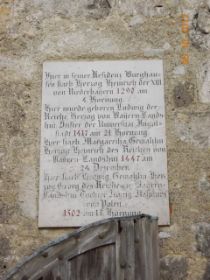 Hier in seiner Residenz Burghau-
ses starb Herzog Heinrich der XIII
von Niederbayern 1290 am
4. Hornung.
Hier wurde geboren Ludwig der
Reiche Herzog von Bayern Lands-
hut Stifter der Universität Ingol-
stadt 1417 am 21. Hornung.
Hier starb Margaretha Gemahlin
Herzog Heinrich des Reichen von
Bayern Landshut 1447 am
24. Dezember.
Hier starb Hedwig Gemahlin Her-
zog Georg des Reichen von Bayern-
Landshut Tochter
von Polen
1502 am 18. Hornung.